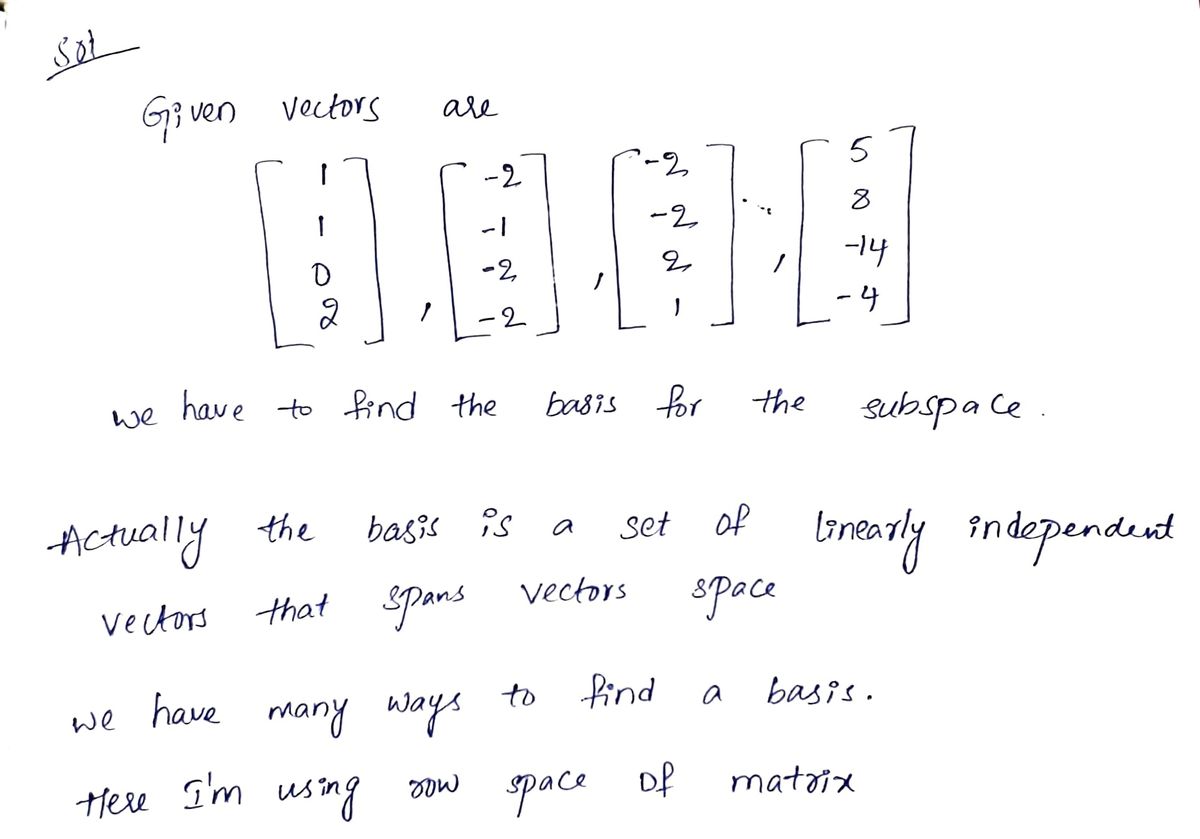 Sol
Given vectors are
[1 1 0 2], [-2 -1 -2 -2], [-2 -2 2 1], ... [5 8 -14 -4]
we have to find the basis for the subspace.
Actually the basis is a set of linearly independent
vectors that spans vectors space
we have many ways to find a basis.
Here I'm using row space of matrix